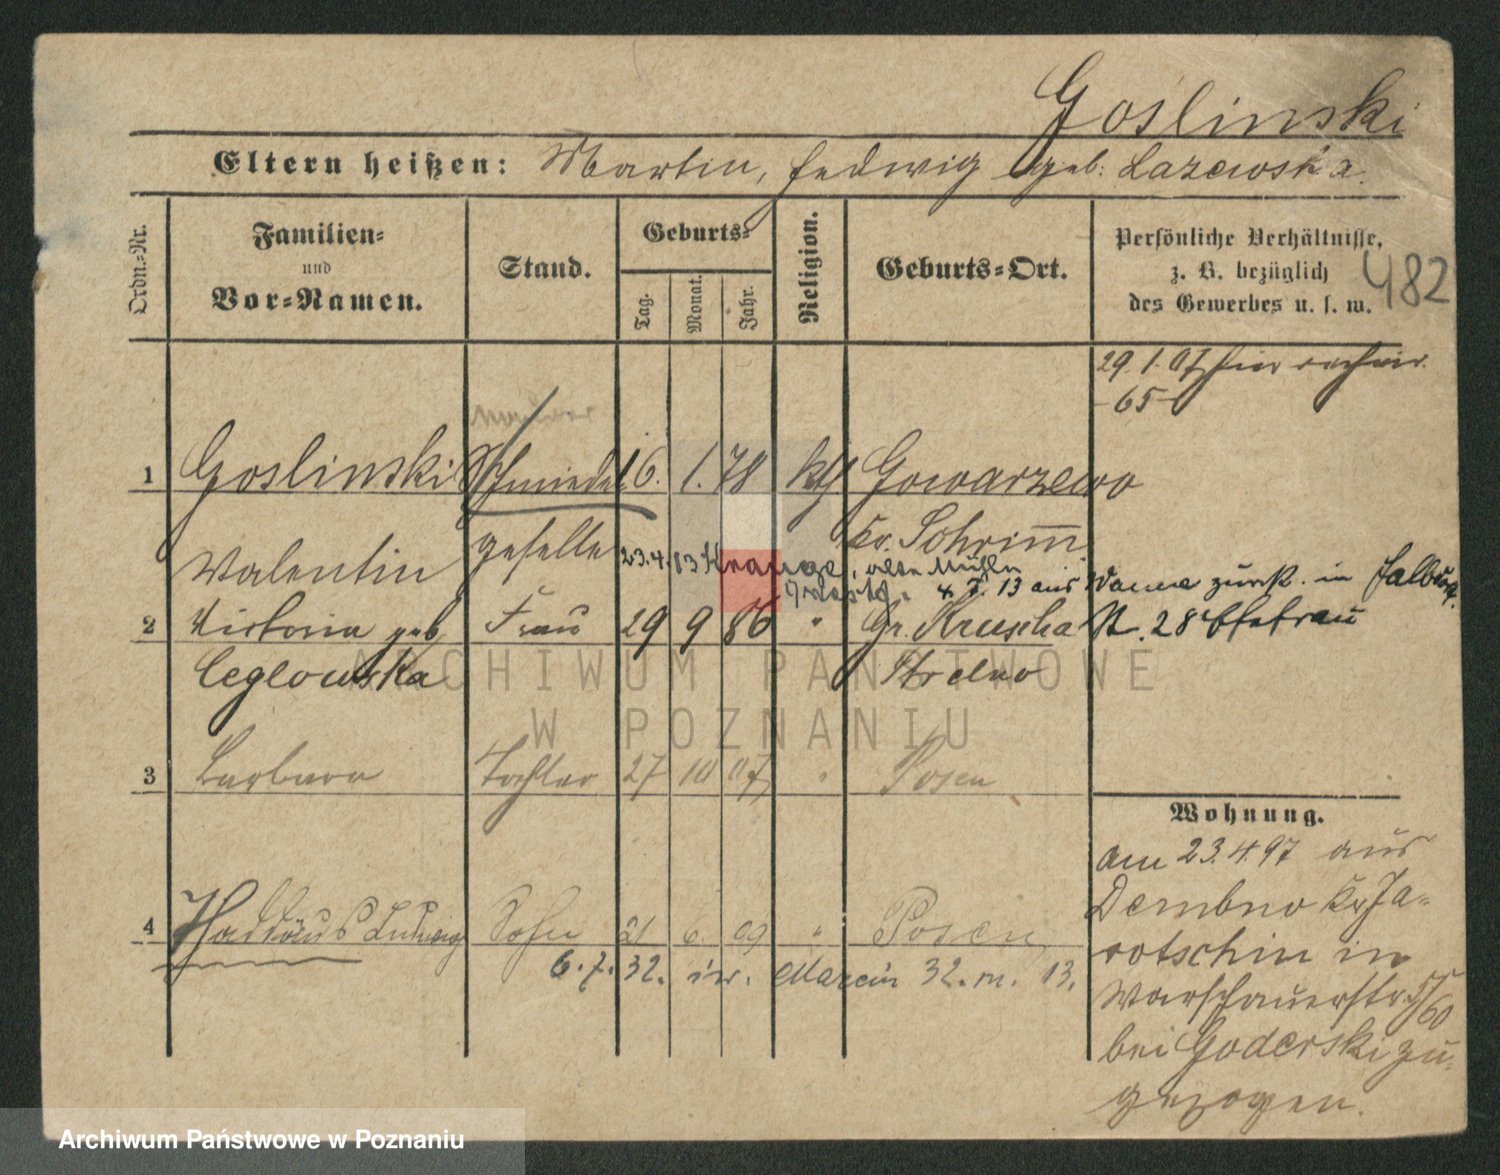 Goslinski
Eltern heißen: Martin, Hedwig geb. Lazewska.
Ordn.-Nr.
Familien- und Vor-Namen.
Stand.
Geburts-
Tag. Monat. Jahr.
Religion.
Geburts-Ort.
Persönliche Verhältnisse,
z. B. bezüglich
des Gewerbes u. s. w.
482
29.1.07 hier
-65-
Maurer
1 Goslinski Schmiede 16. 1. 78 kth Gowarzewo
Valentin geselle Kr. Schrimm
23.4.13
4.7.13 aus Wanne zurück in
2 Victoria geb. Frau 29 9 86 " Gr. Kruscha N. 28 Ehefrau
Ceglowska Strelno
3 Barbara Tochter 27 10 07 " Posen
Wohnung.
am 23.4.97 aus
Dembno Kr Ja-
rotschin in
Warschauerstr. 57/60
bei Goderski zu-
gezogen.
4 Ludwig Sohn 21 6. 09 " Posen
6.7.32. św. Marcin 32. m. 13.
ARCHIWUM PAŃSTWOWE
W POZNANIU
Archiwum Państwowe w Poznaniu